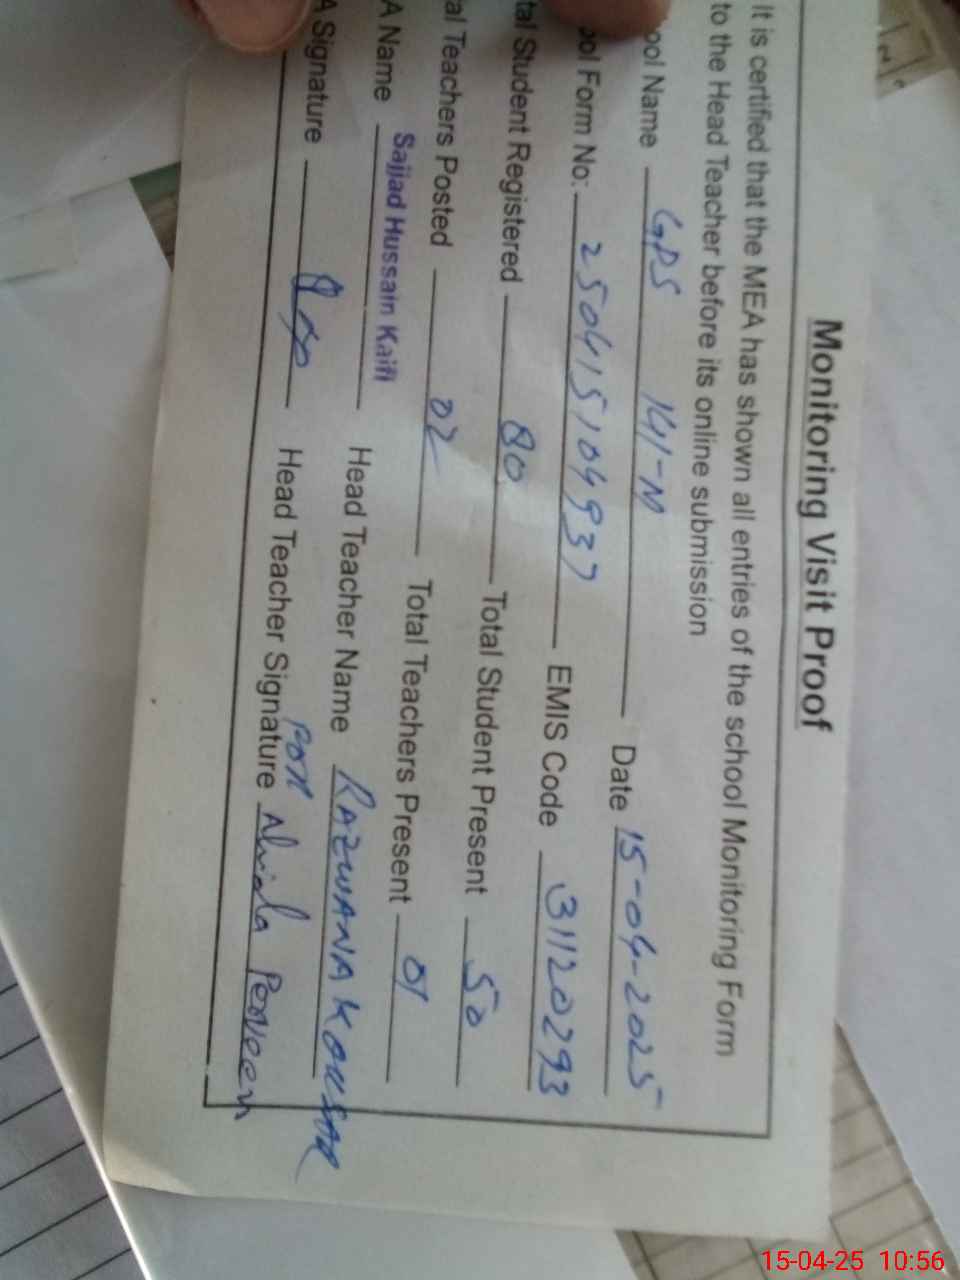 Monitoring Visit Proof
It is certified that the MEA has shown all entries of the school Monitoring Form
to the Head Teacher before its online submission
ool Name GPS 141-M Date 15-04-2025
ool Form No: 250415104937 EMIS Code 31120293
tal Student Registered 80 Total Student Present 50
al Teachers Posted 02 Total Teachers Present 01
A Name Sajjad Hussain Kaifi Head Teacher Name RAZWANA KOUSAR
A Signature Head Teacher Signature Perveen
15-04-25 10:56